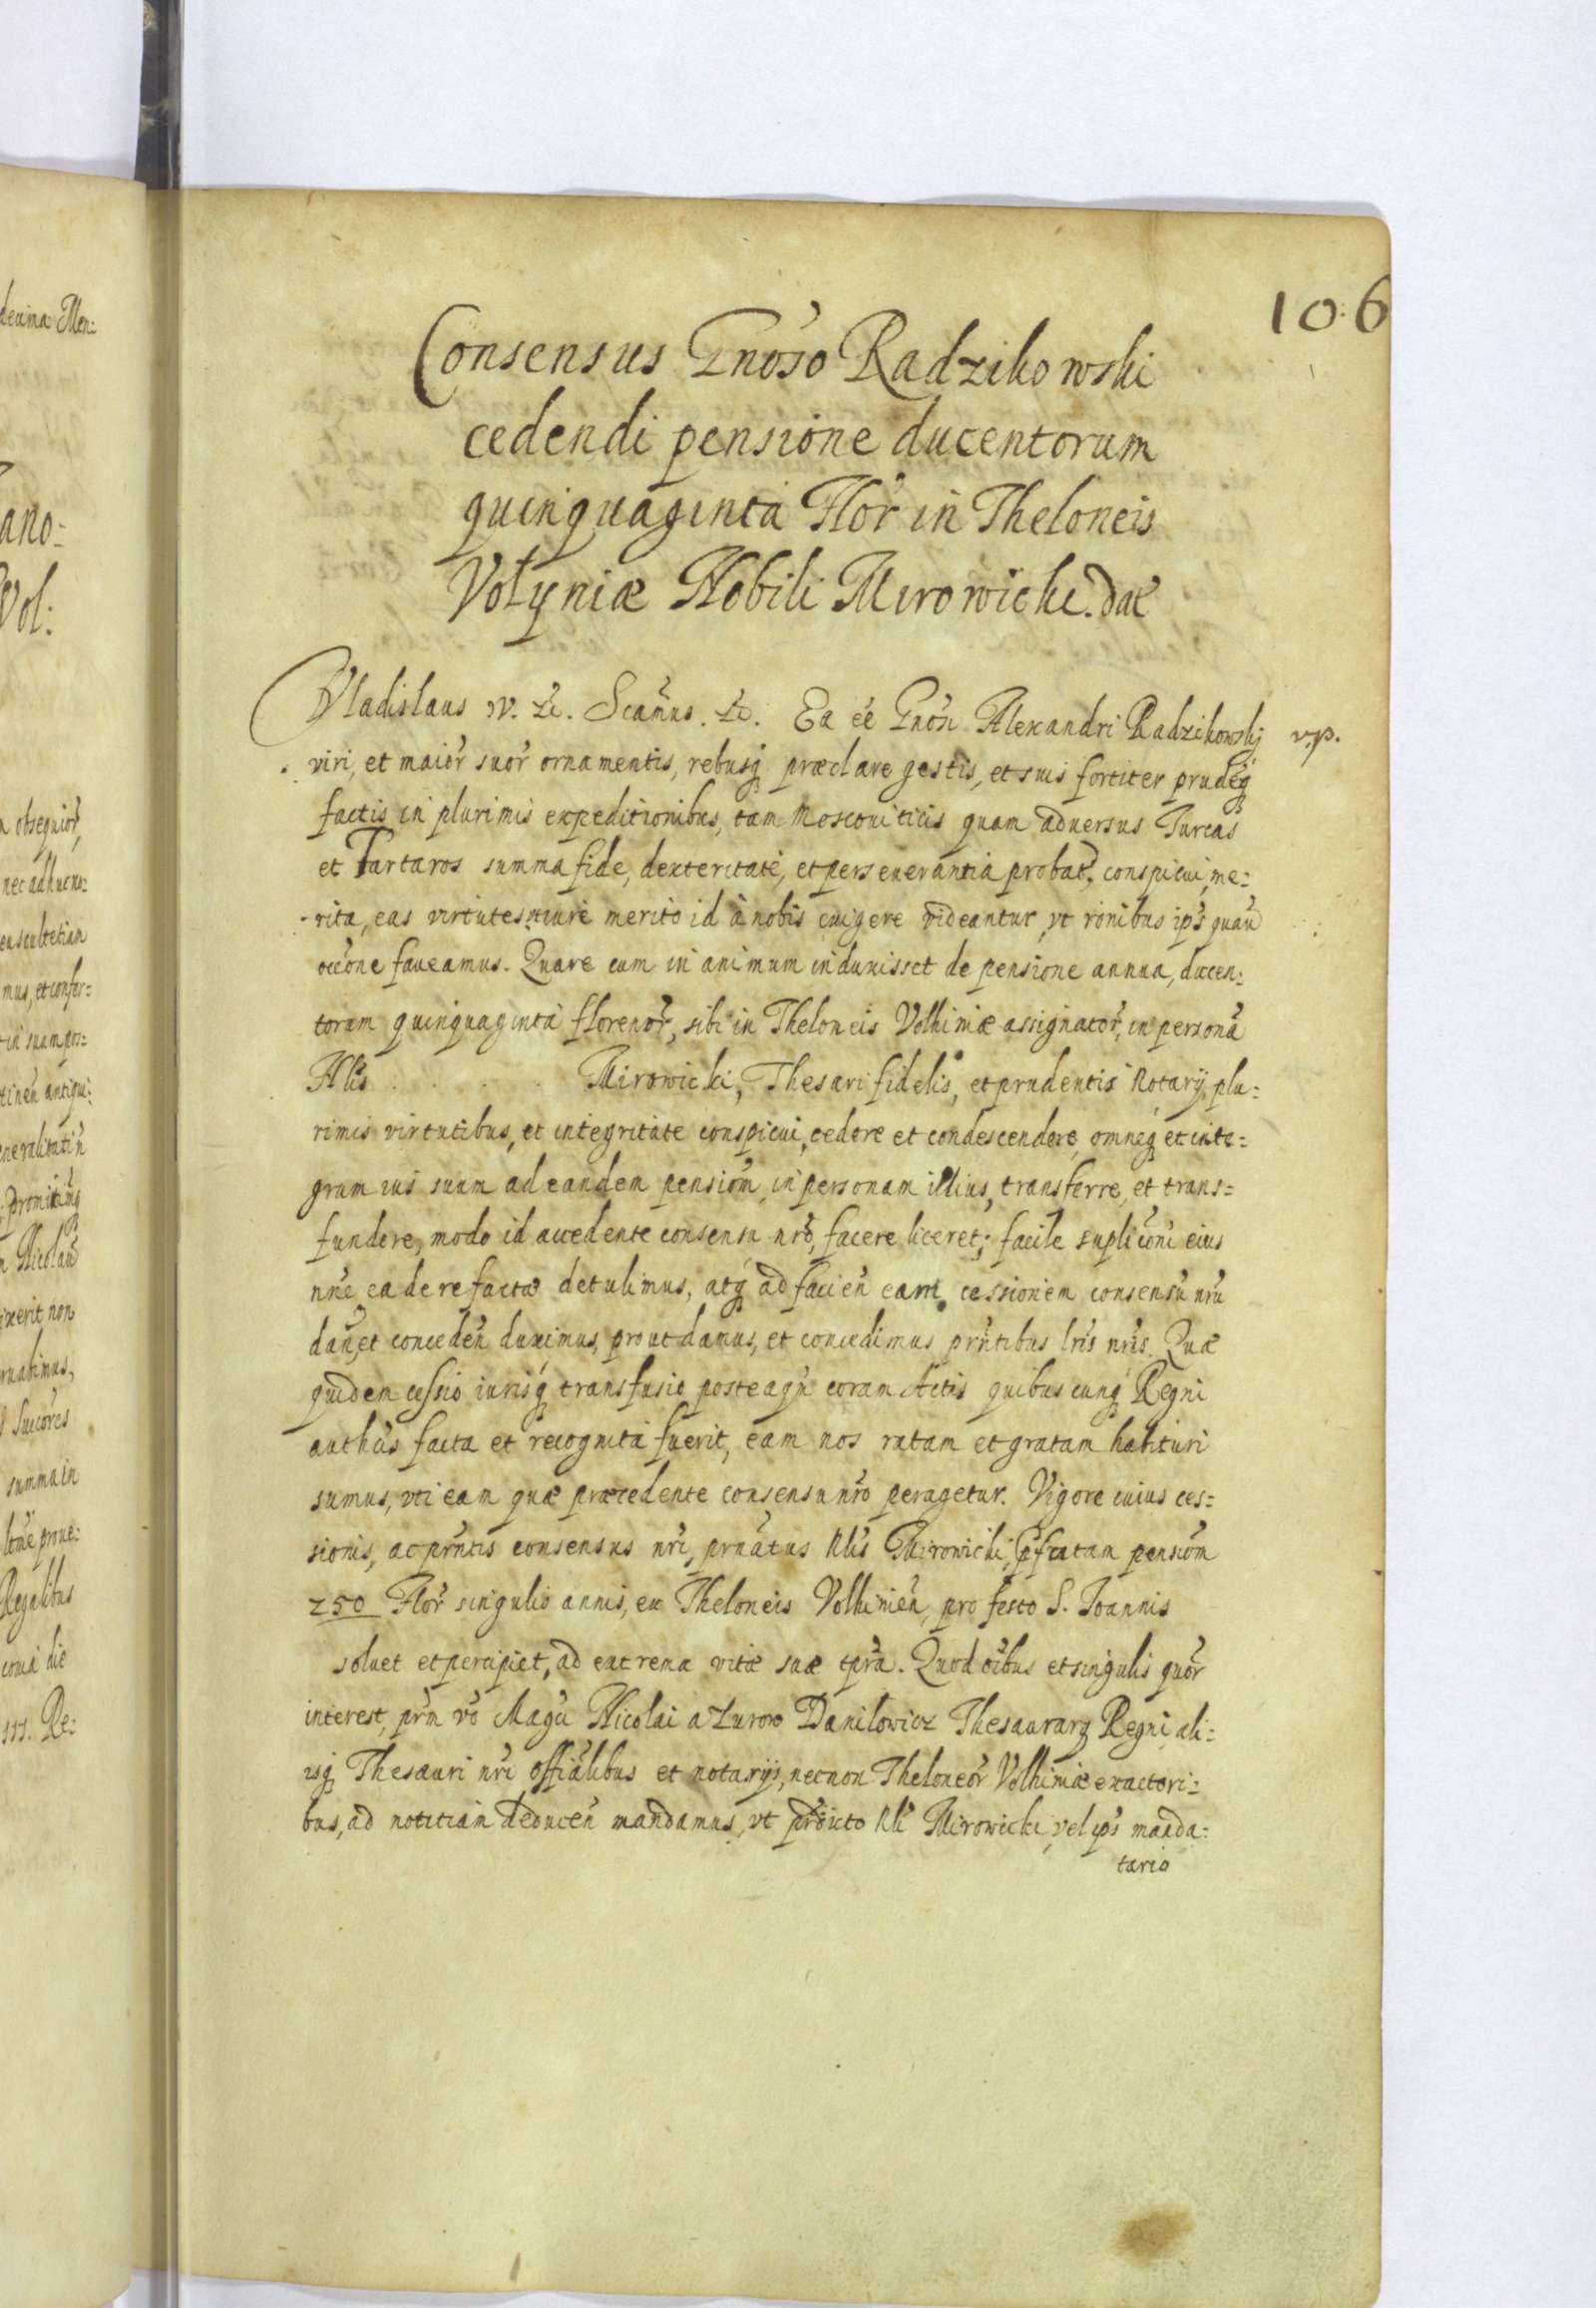 106
Consensus Gnoso Radzikowski
cedendi pensione ducentorum
quinquaginta Flor in Theloneis
Volyniæ Nobili Mirowicki. dat
Vladislaus IV. &c. Scamus. &c. Ea ee Gnosi Alexandri Radzikowskÿ v.p.
viri, et maior suor ornamentis, rebusq præclare gestis, et suis fortiter prudeq
factis in plurimis expeditionibus, tam Moscouiticis quam aduersus Turcas
et Tartaros summa fide, dexteritate, et perseuerantia probat, conspicui, me=
rita, eas virtutes, iure merito id à nobis exigere videantur, vt ronibus ips quau
occone faueamus. Quare cum in animum induxisset de pensione annua, ducen=
torum quinquaginta florenor, sibi in Theloneis Volhiniæ assignator, in persona
Nlis . . . . Mirowicki, Thesari fidelis, et prudentis Notarÿ, plu=
rimis virtutibus, et integritate conspicui, cedere et condescendere, omneq et inte=
grum ius suum ad eandem pensiom in personam illius, transferre, et trans=
fundere, modo id accedente consensu nro, facere liceret; facile supliconi eius
nne ea de re factæ detulimus, atq ad facien eam cessionem consensu nru
dan, et conceden duximus, prout damus, et concedimus prntibus lris nris. Quæ
quidem cessio iurisq transfusio posteaqu coram Actis quibus cunq Regni
authcis facta et recognita fuerit, eam nos ratam et gratam habituri
sumus, vti eam quæ præcedente consensu nro peragetur. Vigore cuius ces=
sionis, ac prntis consensus nri, prnatus Nlis Mirowicki, pfatam pensiom
250 Flor singulis annis, ex Theloneis Volhinien, pro festo S. Ioannis
soluet et percipiet, ad extrema vitæ suæ tpra. Quod oibus et singulis quor
interest, prm vo Magci Nicolai a Zurow Danilowicz Thesaurarÿ Regni, ali=
isq Thesauri nri offialibus et notarÿs, necnon Theloneor Volhiniæ exactori=
bus, ad notitiam deducen mandamus, vt prdicto Nli Mirowicki, vel ips manda=
tario